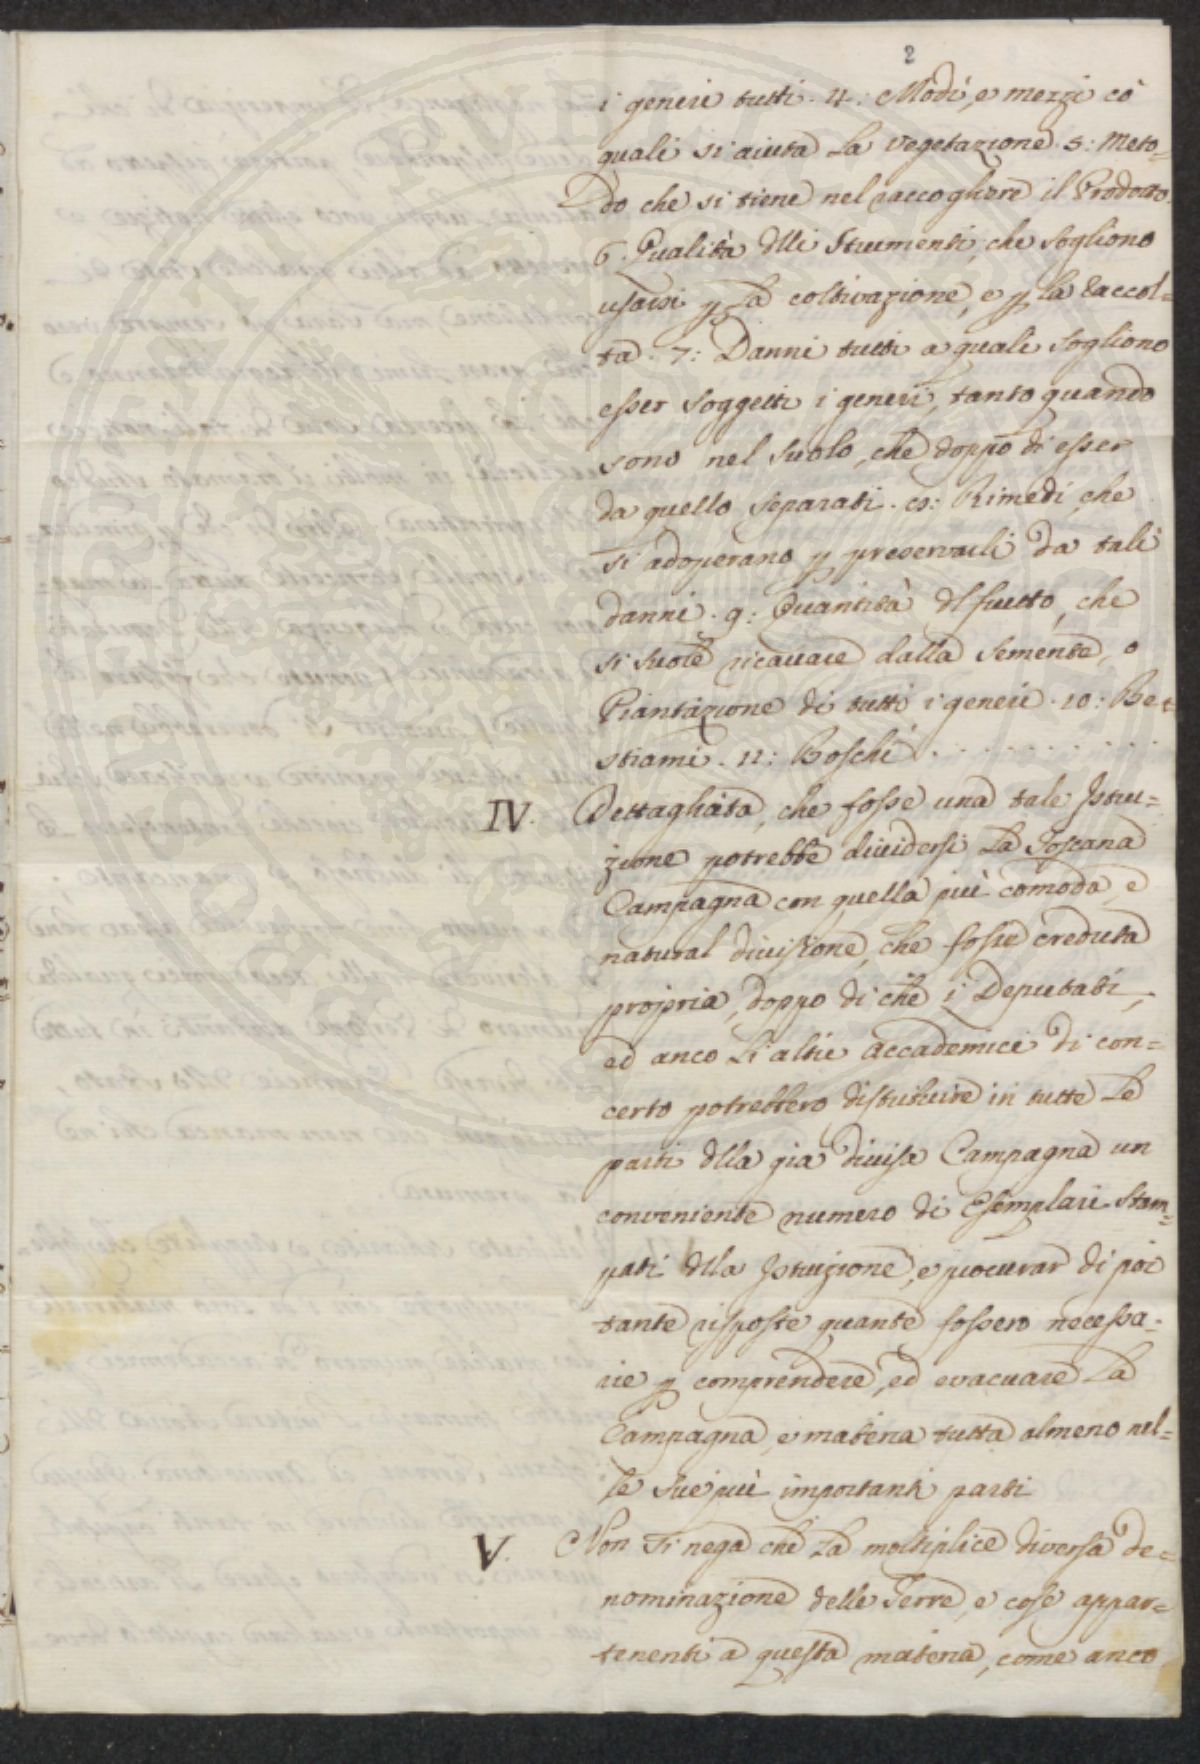 2
i generi tutti. 4: Modi, e mezzi co
quali si aiuta la vegetazione. 5: Meto=
do che si tiene nel raccogliere il Prodotto.
6. Qualità dlli Strumenti, che sogliono
usarsi p la coltivazione, e p la raccol=
ta. 7: Danni tutti a quali sogliono
esser soggetti i generi, tanto quando
sono nel suolo, che doppo di esser
da quello separati. 8: Rimedi che
si adoperano p preservarli da tali
danni. 9: Quantità dl frutto, che
si suole ricavare dalla semente, o
Piantazione di tutti i generi. 10: Be=
stiami. 11: Boschi . . . . . . . . . .
IV. Dettagliata, che fosse una tale Istru=
zione potrebbe dividersi la Toscana
Campagna con quella più comoda, e
natural divisione, che fosse creduta
propria, doppo di che i Deputati,
ed anco li altri accademici di con=
certo potrebbero distribuire in tutte le
parti dlla già divisa Campagna un
conveniente numero di Esemplari stam=
pati dlla Istruzione, e procurar di poi
tante risposte quante fossero necessa=
rie p comprendere, ed evacuare la
Campagna, e materia tutta almeno nel=
le sue più importanti parti
V. Non si nega che la moltiplice diversa de=
nominazione delle Terre, e cose appar=
tenenti a questa materia, come anco